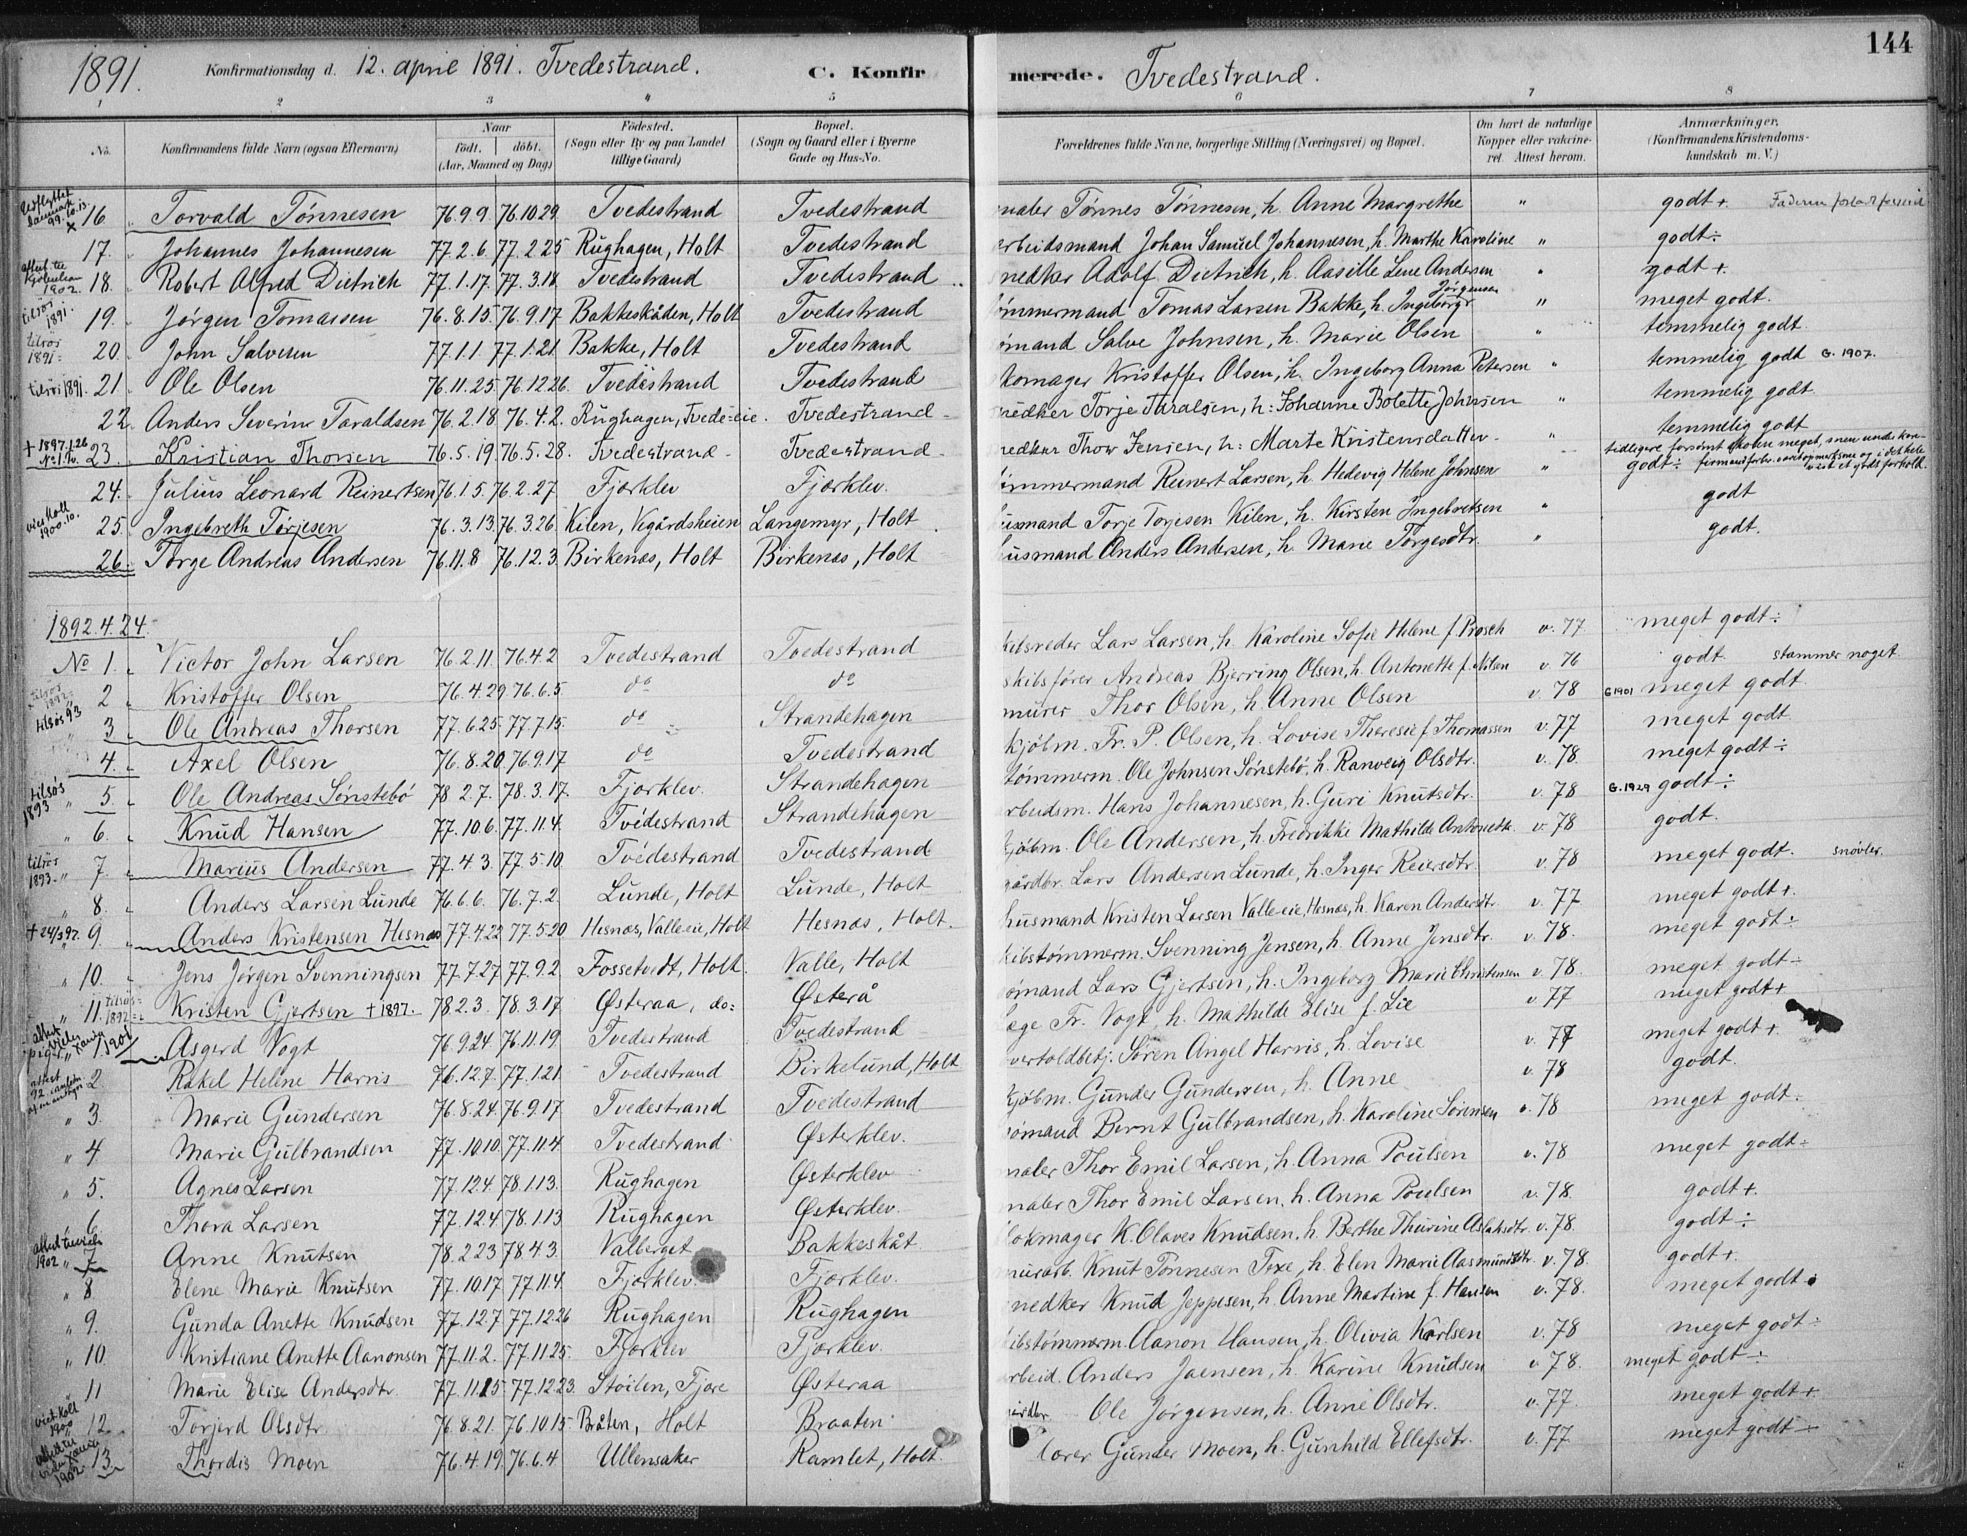 1891. Konfirmationsdag d. 12. april 1891. Tvedestrand. C. Konfir merede. Tvedestrand. 144
1 2 3 4 5 6 7 8
No. Konfirmandens fulde Navn (ogsaa Efternavn) Naar födt. döbt. (Aar, Maaned og Dag) Födested. (Sogn eller By og paa Landet tillige Gaard) Bopæl. (Sogn og Gaard eller i Byerne Gade og Hus-No. Forældrenes fulde Navne, borgerlige Stilling (Næringsvei) og Bopæl. Om havt de naturlige Kopper eller vakcineret. Attest herom. Anmærkninger. (Konfirmandens Kristendomskundskab m. V.)
16 Torvald Tönnesen 76.9.9 76.10.29 Tvedestrand Tvedestrand maler Tönnes Tönnesen, h. Anne Margrethe " godt +.
17. Johannes Johannesen 77.2.6 77.2.25 Rughagen, Holt Tvedestrand arbeidsmand Johan Samuel Johannesen, h. Marthe Karoline " godt ÷
18. Robert Alfred Dietrich 77.1.17. 77.3.18 Tvedestrand Tvedestrand nedker Adolf Dietrich, h. Aasille Lene Andersen " godt +.
tilsös 1891. 19. Jörgen Tomassen 76.8.15. 76.9.17 Bakkeskåden, Holt Tvedestrand ömmermand Tomas Larsen Bakke, h. Ingeborg Jörgensen " meget godt.
tilsös 1891 20. John Salvesen 77.1.1 77.1.21 Bakke, Holt Tvedestrand ömand Salve Johnsen, h. Marie Olsen " temmelig godt.
tilsös 1891. 21. Ole Olsen 76.11.25 76.12.26. Tvedestrand Tvedestrand komager Kristoffer Olsen, h. Ingeborg Anna Petersen " temmelig godt G. 1907.
22. Anders Severin Taraldsen 76.2.18 76.4.2. Rughagen, Tvede-eie. Tvedestrand nedker Torje Taralsen, h: Johanne Bolette Johnsen " temmelig godt
+ 1897.1.26 No. 1. 23. Kristian Thorsen 76.5.19. 76.5.28. Tvedestrand Tvedestrand nedker Thor Jensen, h: Marte Kristensdatter " temmelig godt tidligere forsömt skolen meget, men under kon-
24. Julius Leonard Reinertsen 76.1.5. 76.2.27. Fjærklev Fjærklev. ömmermand Reinert Larsen, h. Hedevig Helene Johnsen " godt ÷
viet Holt 1900.10. 25. Ingebreth Torjesen 76.3.13. 76.3.26. Kilen, Vegårdsheien Langemyr, Holt husmand Torje Torjesen Kilen, h. Kirsten Ingebretsen " godt
26. Torge Andreas Andersen 76.11.8 76.12.3. Birkenæs, Holt Birkenæs, Holt husmand Anders Andersen, h. Marie Torgesdtr. " godt.
1892.4.24.
No 1. Victor John Larsen 76.2.11. 76.4.2 Tvedestrand Tvedestrand kibsreder Lars Larsen, h. Karoline Sofie Helene f. Prosch v. 77 meget godt ÷
tilsös 1892 2 Kristoffer Olsen 76.4.29 76.6.5 do do skibsförer Andreas Bjerring Olsen, h. Antonette f. Nilsen v. 76 godt. stammer noget.
tilsös 93 3 Ole Andreas Thorsen 77.6.25. 77.7.15. do Strandehagen murer Thor Olsen, h. Anne Olsen v. 78 G 1901 meget godt
4. Axel Olsen 76.8.20 76.9.17 do Tvedestrand kjöbm. Fr. P. Olsen, h. Lovise Theresie f. Thomassen v. 77 meget godt
tilsös 1893 5. Ole Andreas Sönstebö 78 2.7. 78.3.17. Fjærklev. Strandehagen tömmerm. Ole Johnsen Sönstebö, h. Ranveig Olsdtr. v. 78. meget godt ÷
" 6. Knud Hansen 77.10.6. 77.11.4. Tvedestrand Strandehagen arbeidsm. Hans Johannesen, h. Guri Knutsdtr. v. 78 G. 1929 godt ÷
tilsös 1893 " 7. Marius Andersen 77.4.3. 77.5.10. Tvedestrand Tvedestrand kjöbm. Ole Andersen, h. Fredrikke Mathilde Antonette v. 78 godt.
" 8. Anders Larsen Lunde 76.6.6. 76.7.2. Lunde, Holt Lunde, Holt gårdbr. Lars Andersen Lunde, h. Inger Reiersdtr. v. 78 meget godt. snövler.
+ 24/3 97. 9. Anders Kristensen Hesnæs 77.4.22 77.5.20 Hesnæs, Valle-eie, Holt Hesnæs, Holt. husmand Kristen Larsen Valle-eie, Hesnæs, h. Karen Andersdtr. v. 77 meget godt +.
" 10. Jens Jörgen Svenningsen 77.7.27. 77.9.2. Fossetvedt, Holt. Valle, Holt kibstömmerm. Svenning Jensen, h. Anne Jensdtr. v. 78. meget godt ÷
" 11. tilsös 1892 Kristen Gjertsen + 1897. 78.2.3. 78.3.17 Østeraa, do: Østerå ömand Lars Gjertsen, h. Ingeborg Marie Christensen v. 78. meget godt ÷
1 Asgerd Vogt 76.9.24 76.11.19 Tvedestrand Tvedestrand læge Fr. Vogt, h. Mathilde Elise f. Lie v. 77 meget godt +
2 Rakel Helene Harris 76.12.7. 77.1.21 Tvedestrand Birkelund, Holt overtoldbetj. Sören Angel Harris, h. Lovise v. 77 meget godt +.
" 3. Marie Gundersen 76.8.24. 76.9.17 Tvedestrand Tvedestrand kjöbm. Gunder Gundersen, h. Anne v. 78 godt.
" 4 Marie Gulbrandsen 77.10.10. 77.11.4. Tvedestrand Østerklev. ömand Bernt Gulbrandsen, h. Karoline Sörensen v. 78 meget godt ÷
" 5. Agnes Larsen 77.12.4 78.1.13. Rughagen Østerklev maler Thor Emil Larsen, h. Anna Poulsen v. 78 meget godt ÷
" 6 Thora Larsen 77.12.4 78.1.13 Rughagen Østerklev. maler Thor Emil Larsen, h. Anna Poulsen v. 78. godt +.
1902 " 7 Anne Knutsen 78.2.23 78.4.3. Valberget Bakkeskåt blokmager K. Olaves Knudsen, h. Berthe Thurine Aslaksdtr v. 78. godt ÷
" 8 Elene Marie Knutsen 77.10.17. 77.11.4. Fjærklev. Fjærklev. murarb. Knut Tönnesen Toxe, h. Elen Marie Aasmundsdtr. v. 78. godt +.
" 9. Gunda Anette Knudsen 77.12.7. 77.12.26 Rughagen Rughagen nedker Knud Jeppesen, h. Anne Martine f. Hansen v. 78. meget godt ÷
" 10. Kristiane Anette Aanonsen 77.11.2. 77.11.25. Fjærklev Fjærklev. kibstömmerm. Aanon Hansen, h. Olivia Karlsen v. 78 meget godt ÷
" 11 Marie Elise Andersdtr. 77.11.15 77.12.23. Stöilen, Fjære Østeraa arbeid. Anders Jaensen, h. Karine Knudsen v. 78. meget godt ÷
viet Holt 1900 12. Torjerd Olsdtr. 76.8.21. 76.10.15 Bråten, Holt Braaten gårdbr. Ole Jörgensen, h. Anne Olsdtr. v. 77. meget godt +
1902. 13. Thordis Moen 76.4.19. 76.6.4 Ullensaker Ramlet, Holt. lærer Gunder Moen, h. Gunhild Ellefsdtr. v. 77 meget godt ÷